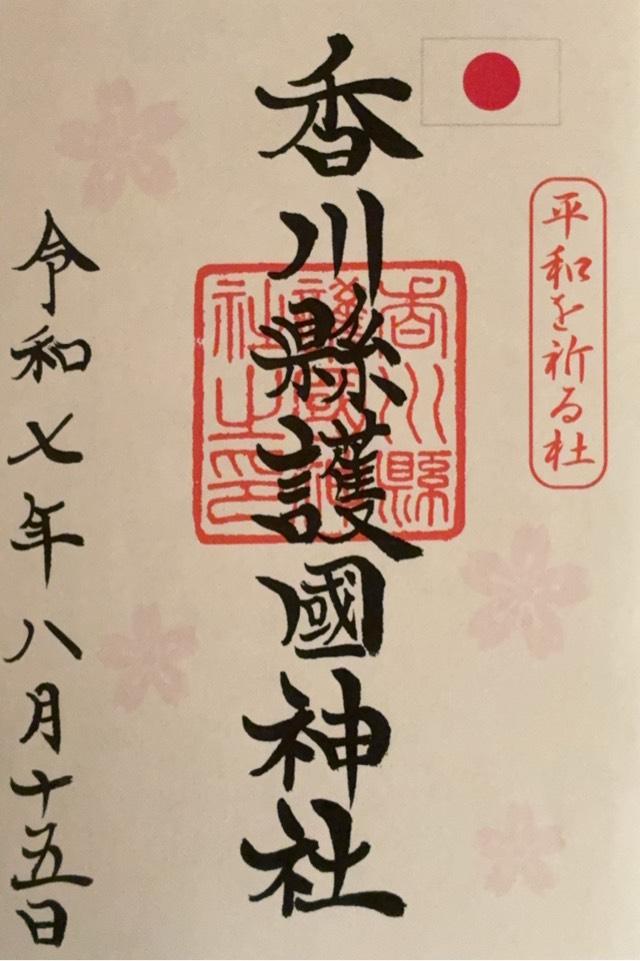 平和を祈る社
香川縣護國神社
香川縣護國神社之印
令和七年八月十五日